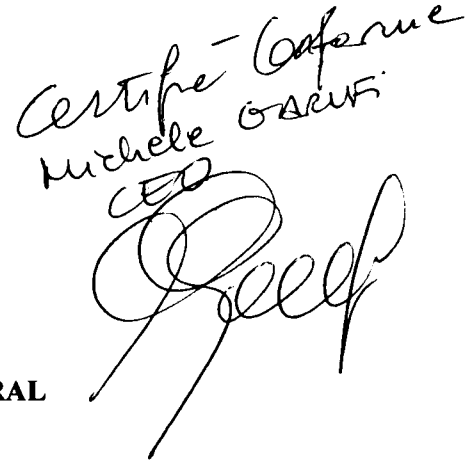 Certifié Conforme
Michele GARUFI
CEO
RAL